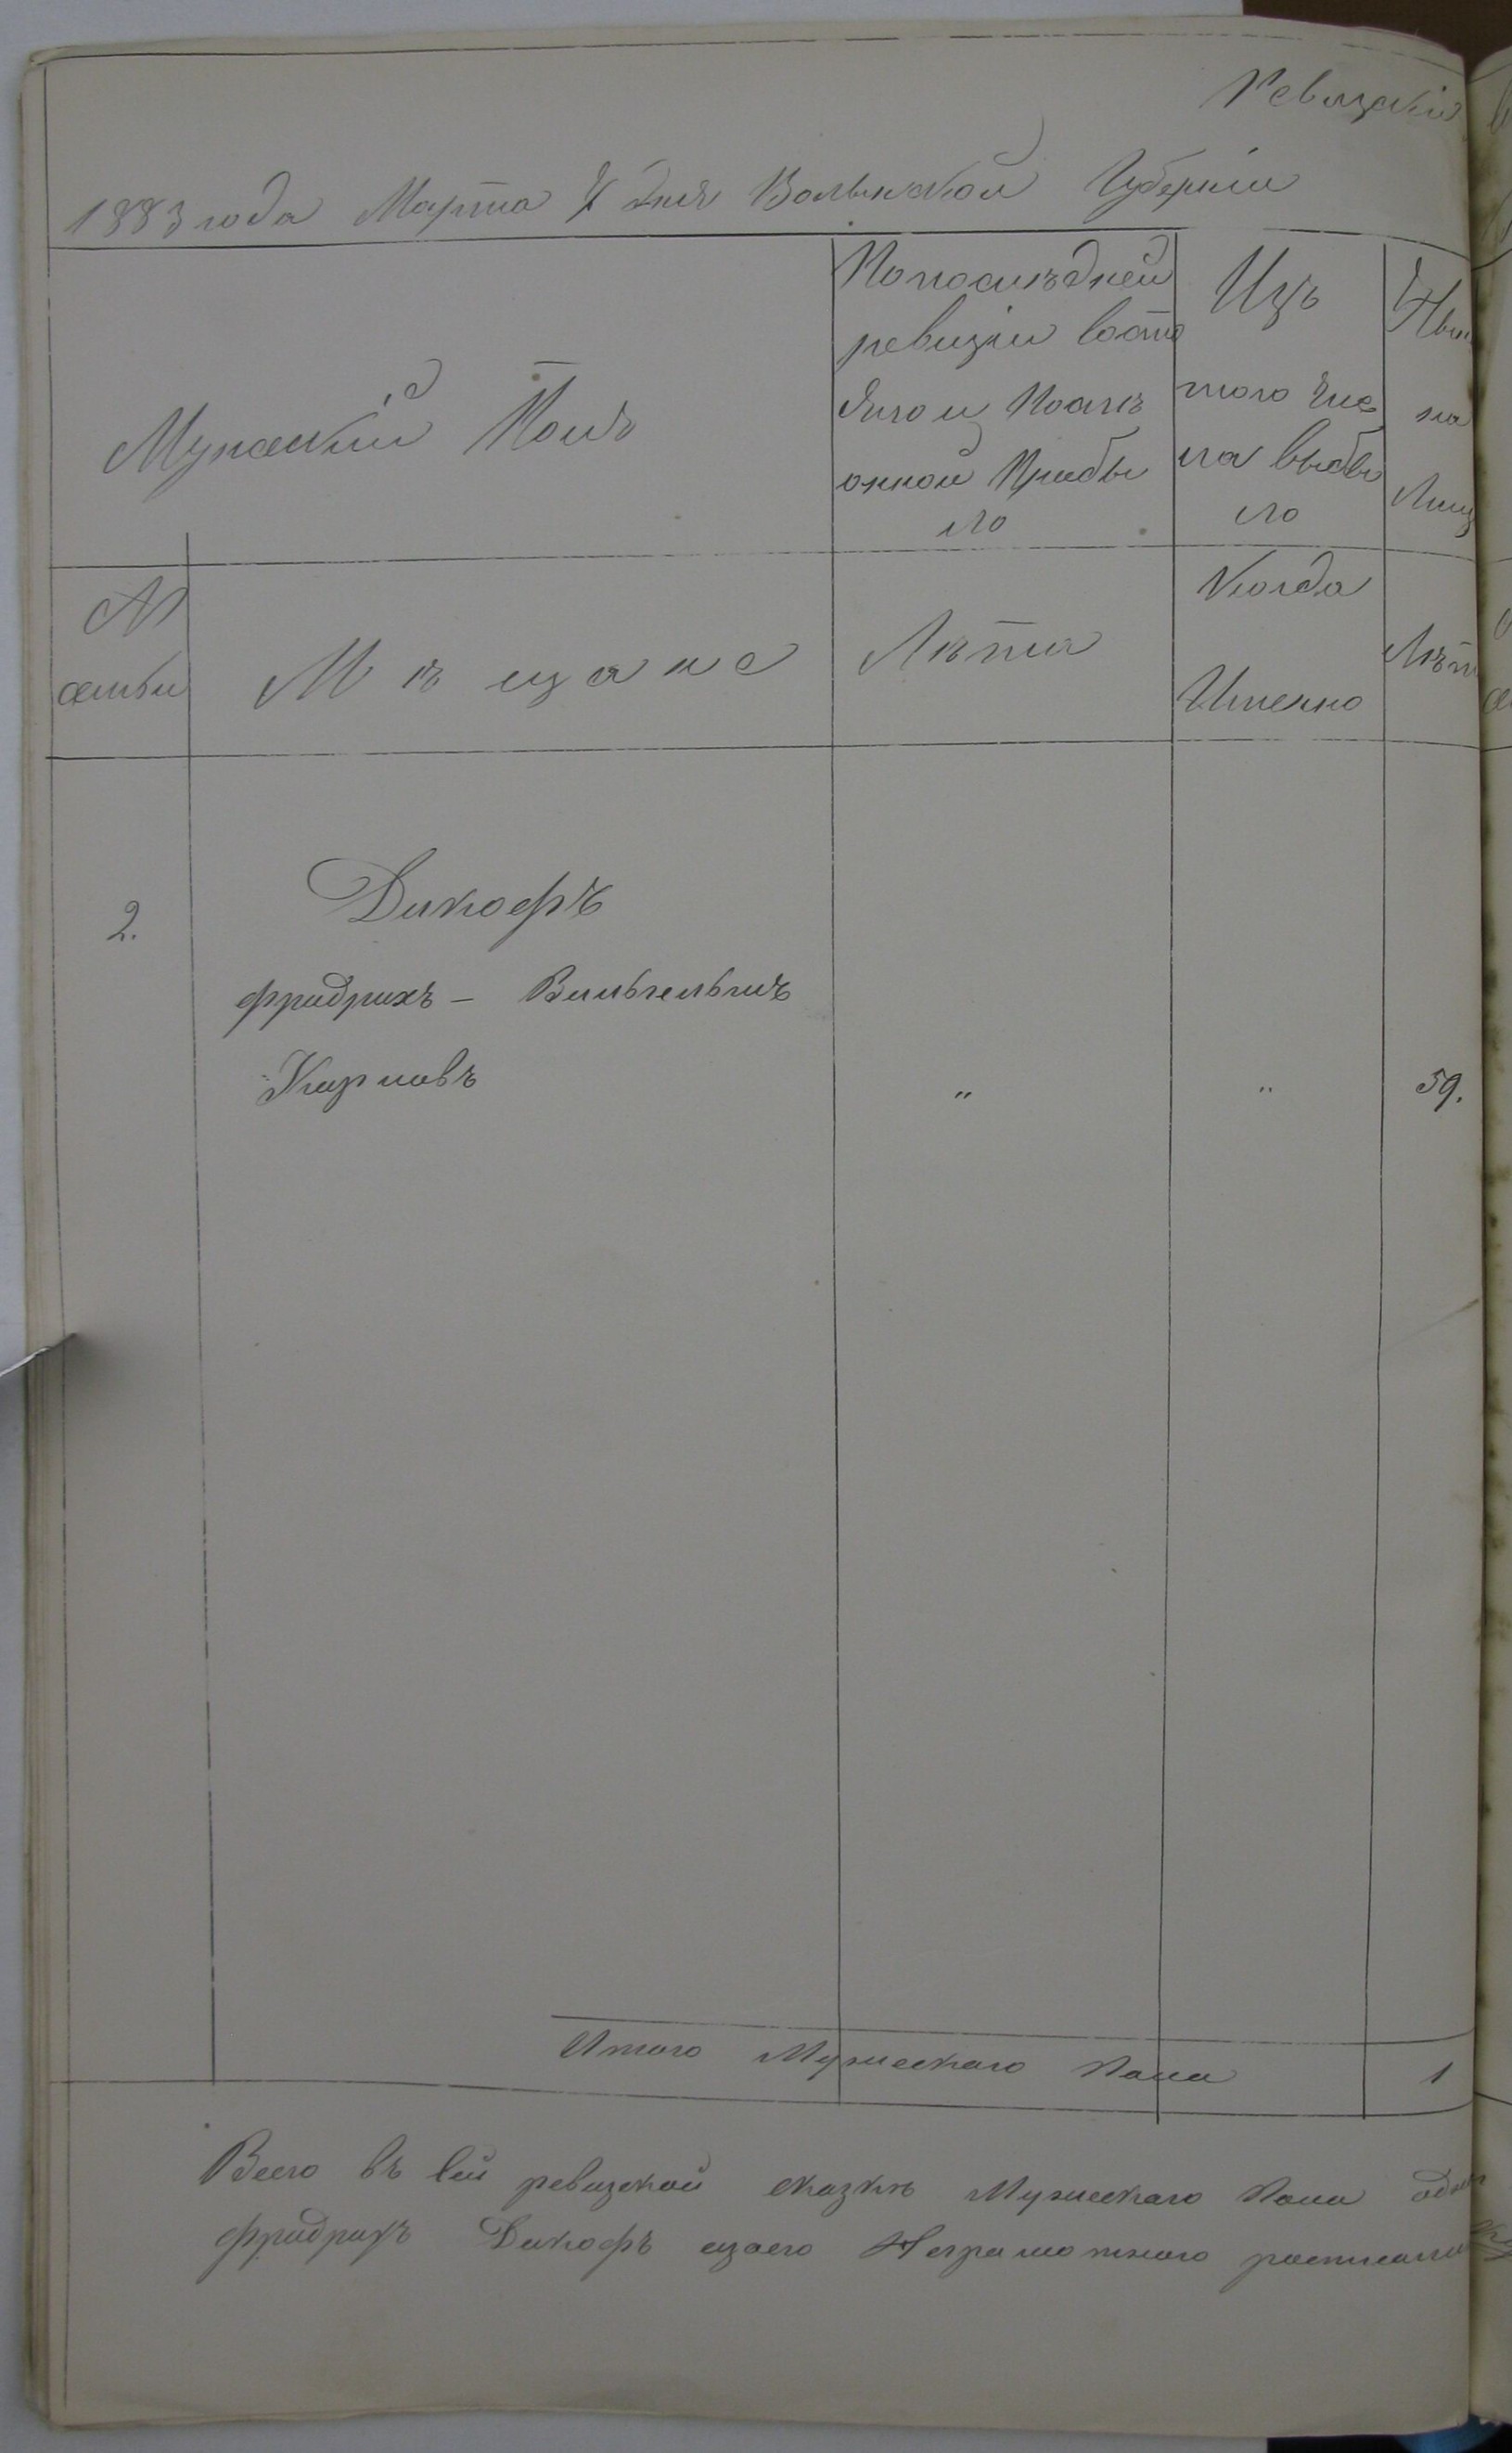 Ревизскія
1883 года Марта 7 дня Волынской Губерніи
Мужескій Полъ
Попослѣдней
ревизіи состо
яло и Послѣ
онной Прибы
ло
Изъ
того Чис
ла выбы
ло
Нын
на
Лиц
№
семьи
Мѣщане
Лѣта
Когда
Именно
Лѣт
2.
Дикофъ
Фридрихъ - Вильгельмъ
Карловъ
"
"
59.
Итого Мужескаго Пола
1
Всего въ сей ревизской сказкѣ Мужескаго Пола один
Фридрихъ Дикофъ изаего Неграмотнаго